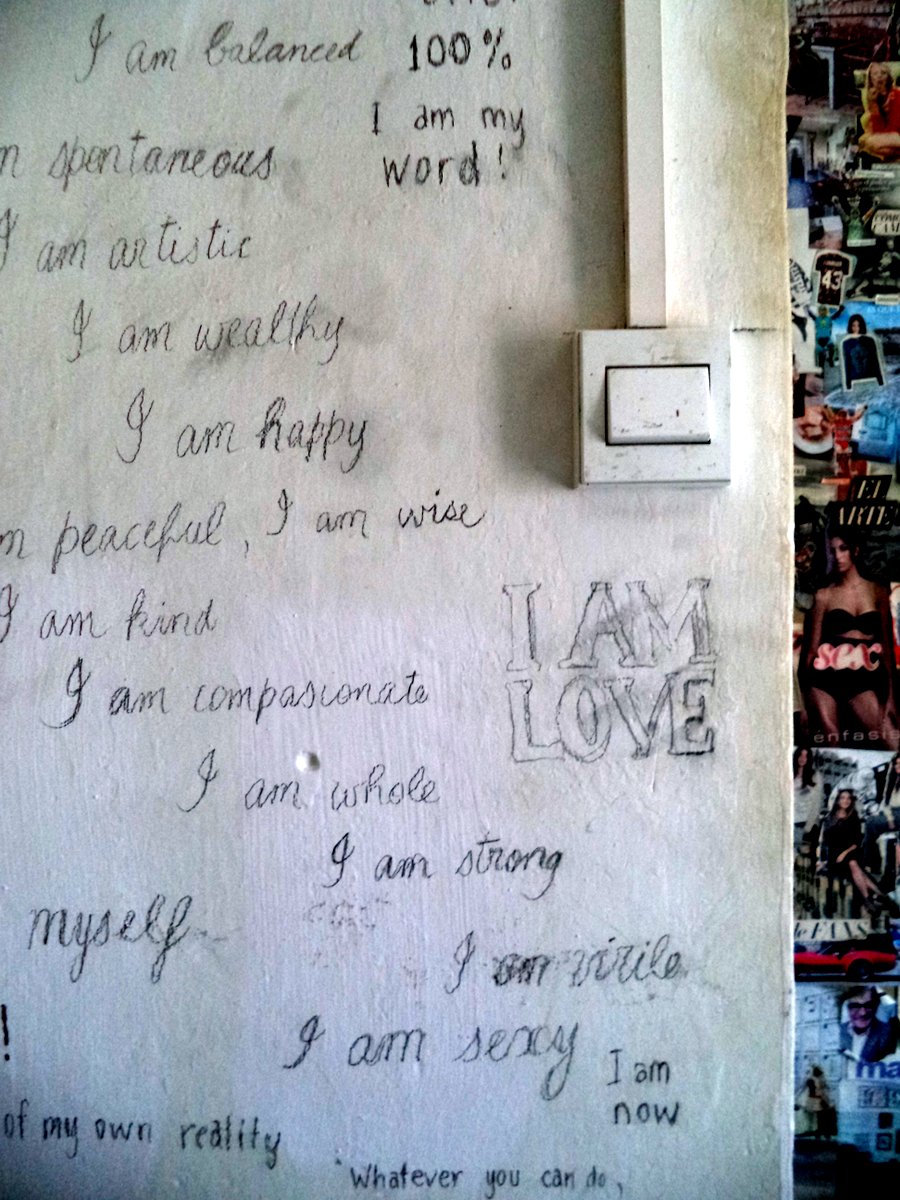 I am balanced
100%
I am my
word!
spontaneous
I am artistic
I am wealthy
I am happy
peaceful, I am wise
I am kind
I am compasionate
I AM
LOVE
I am whole
I am strong
myself
I am virile
I am sexy
!
I am
now
of my own reality
Whatever you can do,
43
EL
ARTE
sex
énfasis